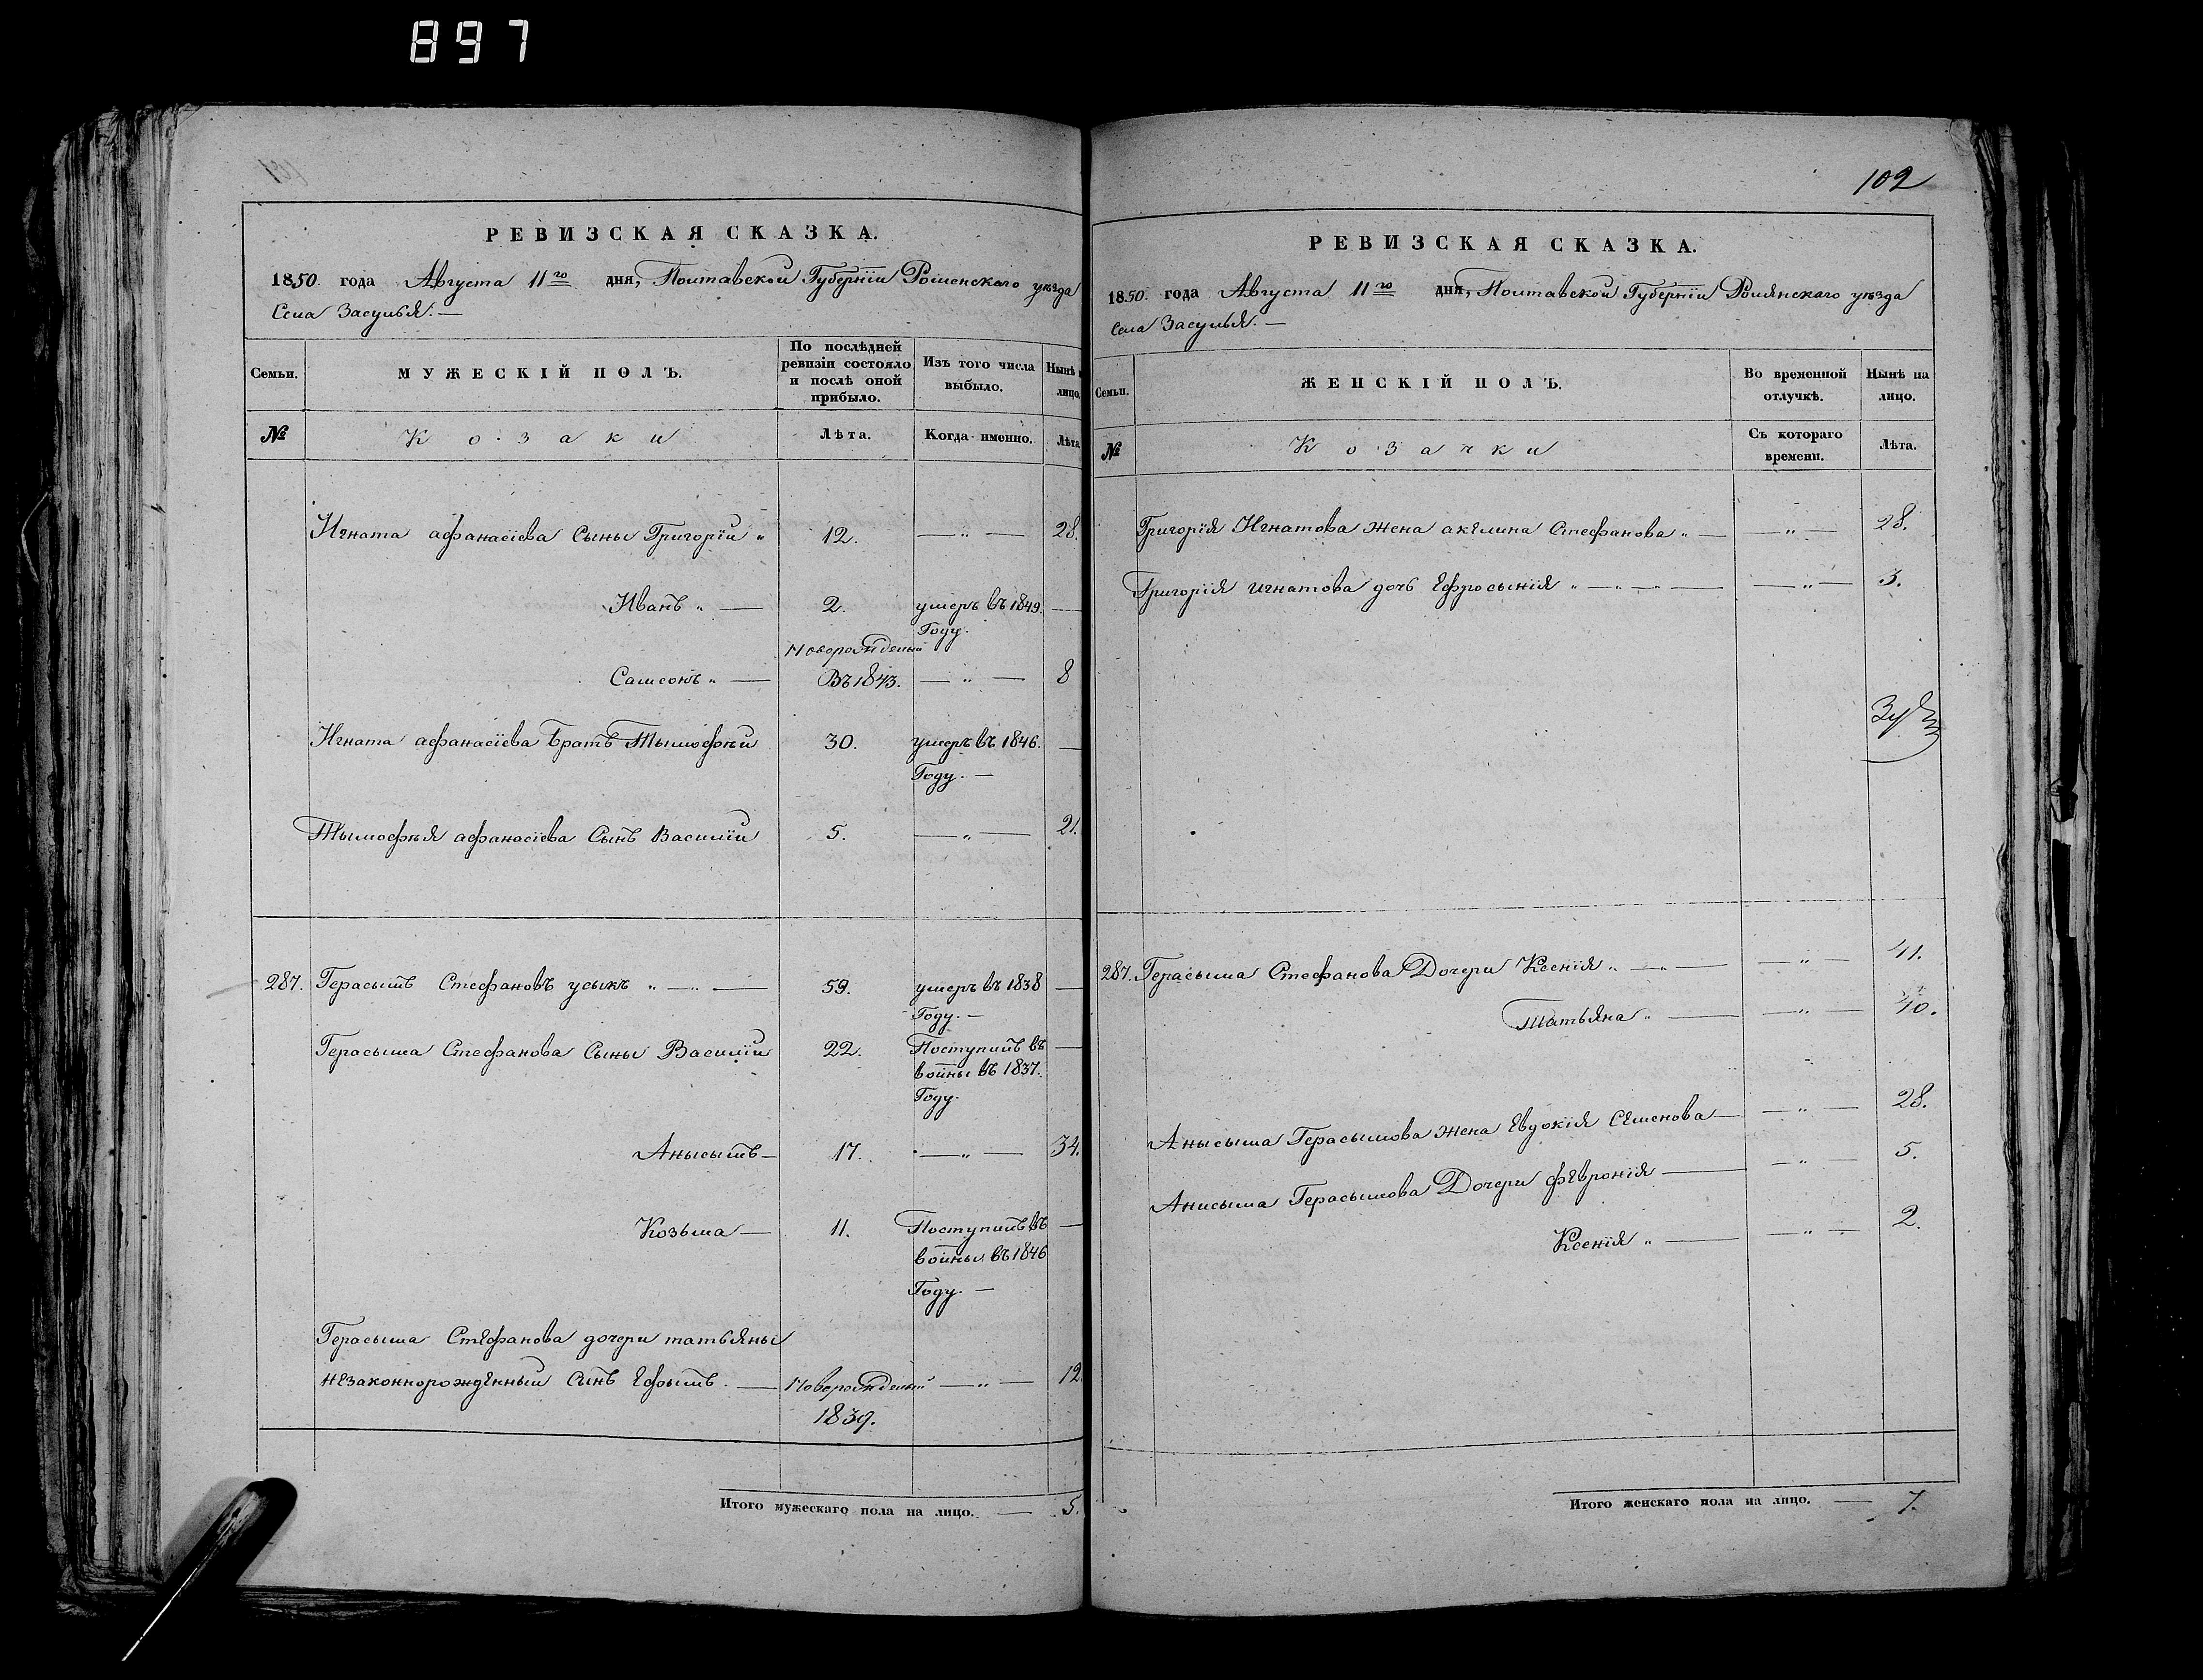 897
102
РЕВИЗСКАЯ СКАЗКА.
1850. года Августа 11го дня, Полтавской Губерніи Роменскаго уѣзда
Села Засулья. —
Семьи.
МУЖЕСКІЙ ПОЛЪ.
По послѣдней ревизіи состояло и послѣ оной прибыло.
Изъ того числа выбыло.
Нынѣ на лицо.
№
Козаки
Лѣта.
Когда именно.
Лѣта
Игната афанасіева Сыны Григорій „ 12. — „ — 28.
Иванъ „ — 2. умеръ въ 1849. —
Году.
Новорожденый
Самсонъ „ — Въ 1843. — „ — 8
Игната афанасіева братъ Тымофѣй 30. умеръ въ 1846. —
Году. —
Тымофѣя афанасіева Сынъ Василій 5. — „ — 21.
287. Герасымъ Стефановъ усыкъ „ — „ — 59. умеръ въ 1838 —
Году. —
Герасыма Стефанова Сыны Василій 22. Поступилъ въ —
войны въ 1837.
Году.
Анысымъ — 17. — „ — 34.
Козьма — 11. Поступилъ въ —
войны въ 1846
Году. —
Герасыма Стефанова дочери татьяны
незаконнорожденный Сынъ Ефымъ. — Новорожденый — „ — 12.
1839.
Итого мужескаго пола на лицо. — 5.
РЕВИЗСКАЯ СКАЗКА.
1850. года Августа 11го дня, Полтавской Губерніи Ромянскаго уѣзда
Села Засулья. —
Семьи.
ЖЕНСКІЙ ПОЛЪ.
Во временной отлучкѣ.
Нынѣ на лицо.
№
Козачки
Съ котораго времени.
Лѣта.
Григорія Игнатова жена акелина Стефанова „ — — „ — 28.
Григорія игнатова дочь Ефросынія „ — „ — — „ — 3.
287. Герасыма Стефанова Дочери Ксенія „ — „ — — „ — 41.
Татьяна „ — — „ — 40.
Анысыма Герасымова жена Евдокія Семенова — — „ — 28.
Анисыма Герасымова Дочери февронія — — „ — 5.
Ксенія „ — — „ — 2.
Итого женскаго пола на лицо. — 7.